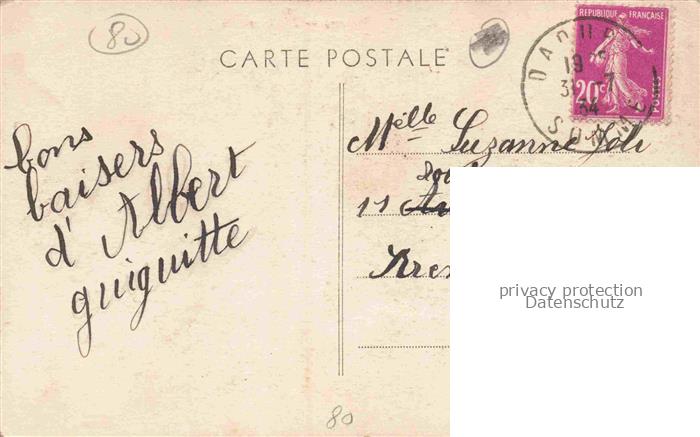 80
CARTE POSTALE
REPUBLIQUE FRANÇAISE
20c
POSTES
DAOURS
19
34
SOMME
bons
baisers
d'Albert
guiguitte
Melle Suzanne
11
privacy protection
Datenschutz
80